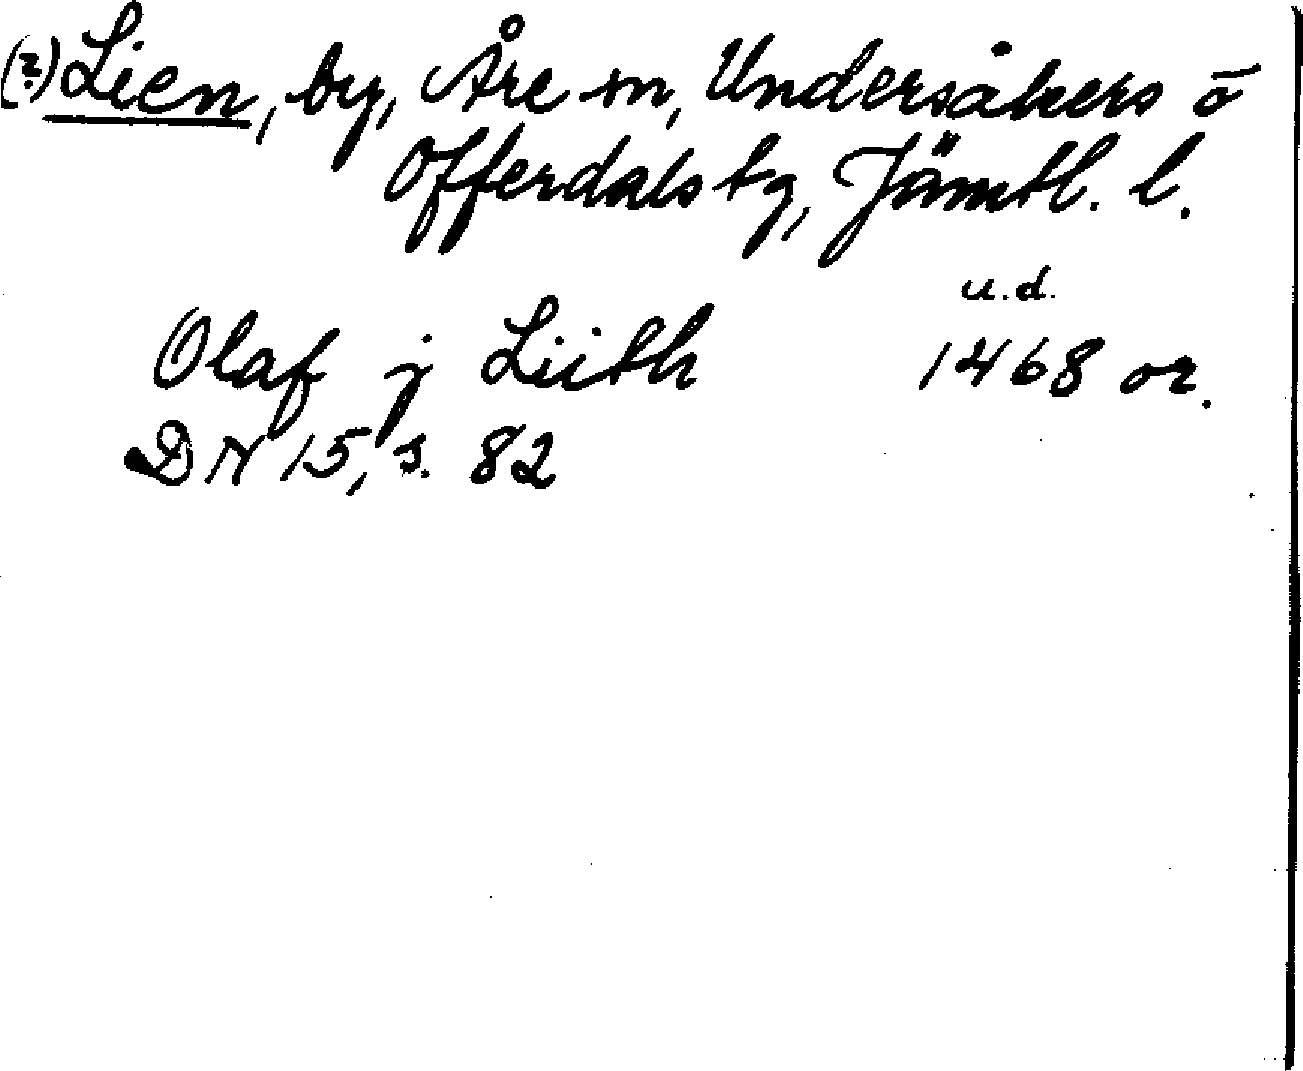 (?) Lien, by, Åre sn, Undersåkers o
Offerdals tg, Jämtl. l.
u.d.
Olaf j Liith 1468 or.
DN 15, s. 82